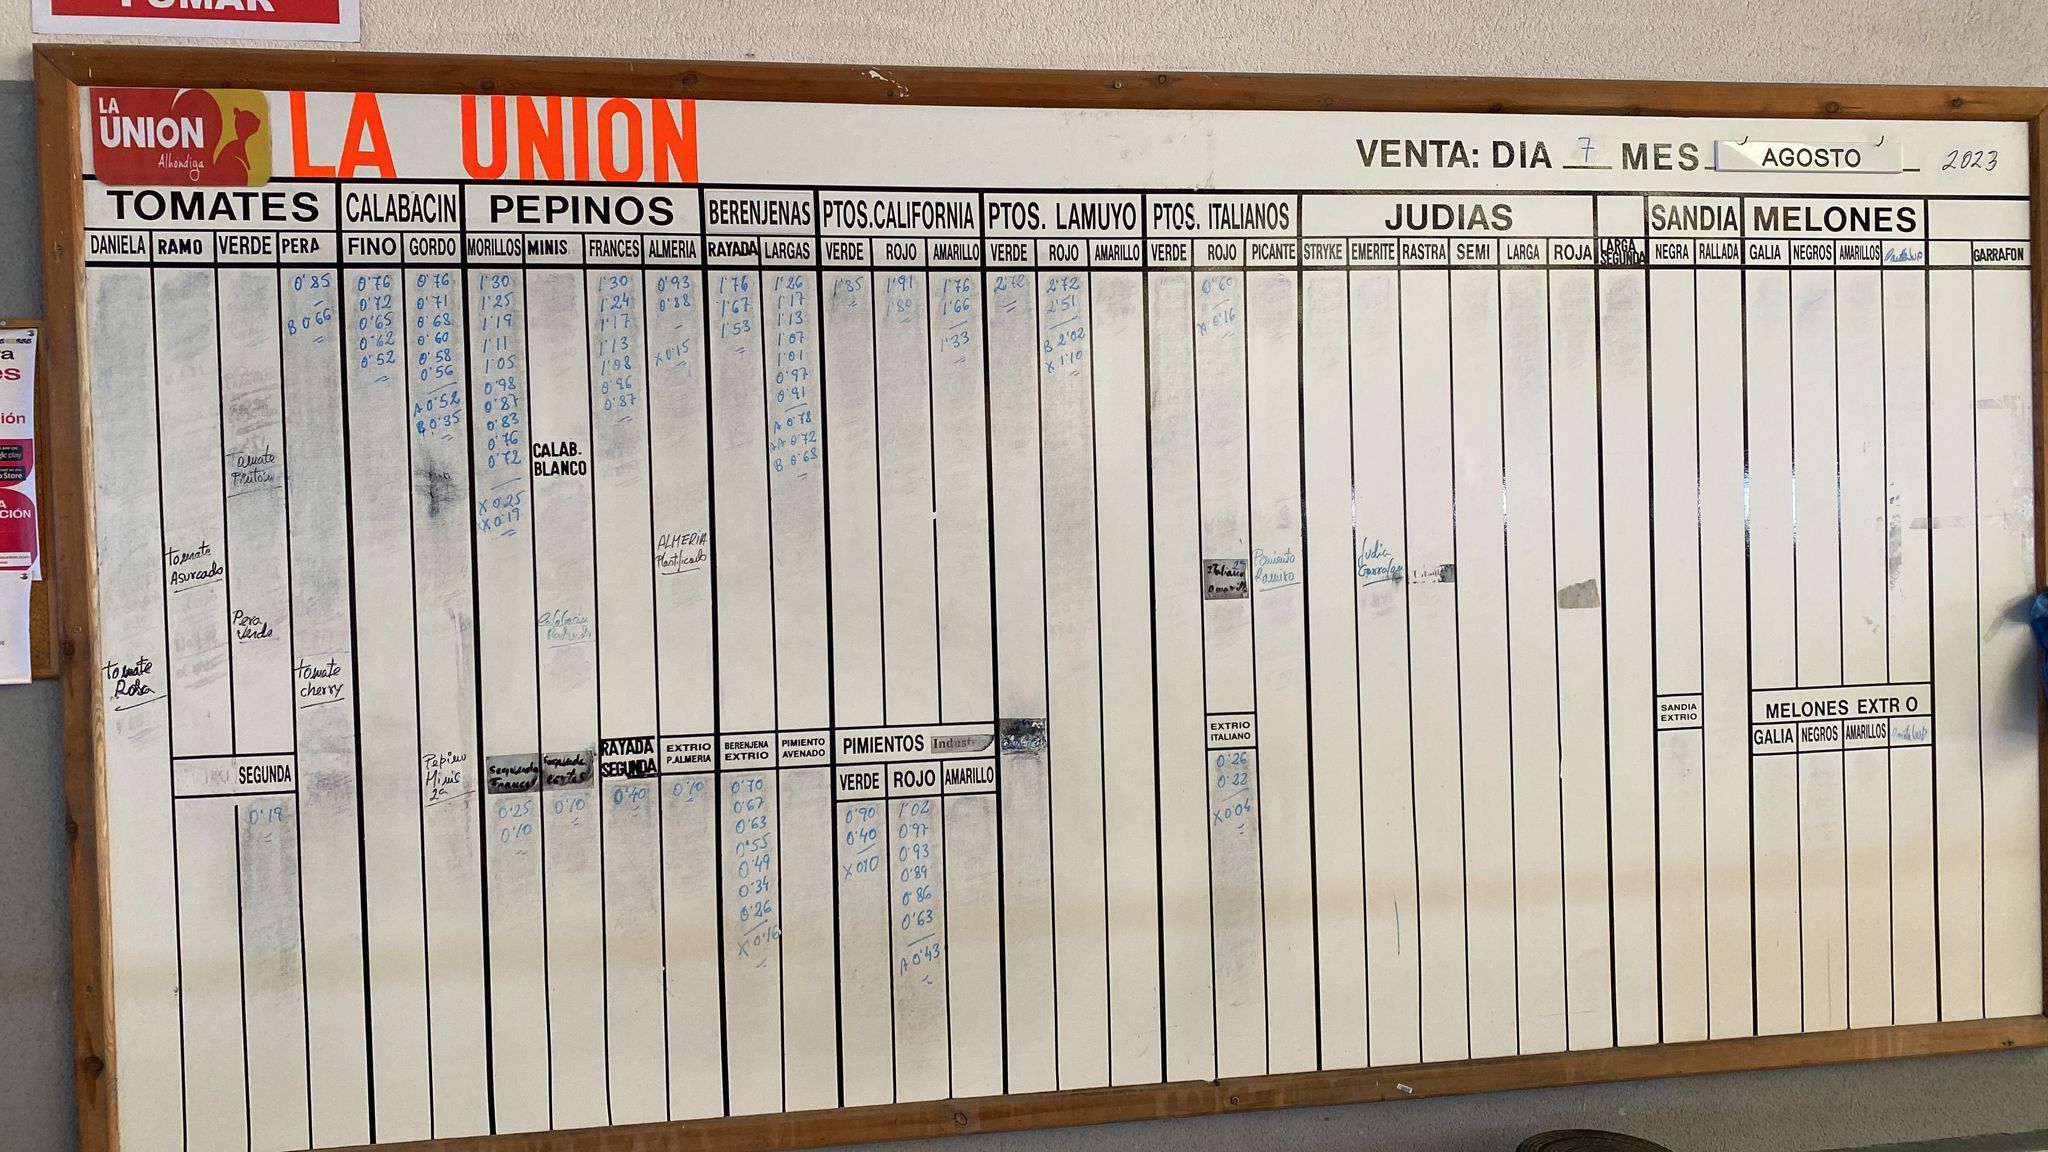 FUMAR
LA UNION Alhóndiga
LA UNION
VENTA: DIA 7 MES AGOSTO 2023
TOMATES CALABACIN PEPINOS BERENJENAS PTOS.CALIFORNIA PTOS. LAMUYO PTOS. ITALIANOS JUDIAS SANDIA MELONES
DANIELA RAMO VERDE PERA FINO GORDO MORILLOS MINIS FRANCES ALMERIA RAYADA LARGAS VERDE ROJO AMARILLO VERDE ROJO AMARILLO VERDE ROJO PICANTE STRYKE EMERITE RASTRA SEMI LARGA ROJA LARGA SEGUNDA NEGRA RALLADA GALIA NEGROS AMARILLOS GARRAFON
0'85
B 0'66
0'76
0'72
0'65
0'62
0'52
0'76
0'71
0'68
0'60
0'58
0'56
A 0'52
B 0'35
1'30
1'25
1'19
1'11
1'05
0'98
0'87
0'83
0'76
0'72
X 0'25
XX 0'19
CALAB.
BLANCO
1'30
1'24
1'17
1'13
1'08
0'96
0'87
0'93
0'88
X 0'15
1'76
1'67
1'53
1'26
1'17
1'13
1'07
1'01
0'97
0'91
A 0'78
AA 0'72
B 0'68
1'85
1'91
1'80
1'76
1'66
1'33
2'72
2'72
2'51
B 2'02
X 1'10
0'60
X 0'16
Tomate
Pintón
Tomate
Asurcado
Pera
Verde
Tomate
Rosa
Tomate
cherry
ALMERIA
Plastificado
Calabacin
Italiano
Judia
SEGUNDA
0'19
Pepino
Minis
2a
Segunda
Frances
0'25
0'10
Segunda
cortos
0'10
RAYADA
SEGUNDA
0'40
EXTRIO
P.ALMERIA
0'10
BERENJENA
EXTRIO
0'70
0'67
0'63
0'55
0'49
0'34
0'26
X 0'16
PIMIENTO
AVENADO
PIMIENTOS Indust
VERDE ROJO AMARILLO
0'90
0'40
X 0'10
1'02
0'97
0'93
0'89
0'86
0'63
A 0'43
EXTRIO
ITALIANO
0'26
0'22
X 0'04
SANDIA
EXTRIO
MELONES EXTR O
GALIA NEGROS AMARILLOS